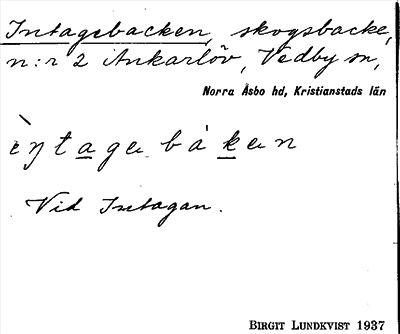 Intagebacken, skogsbacke,
n:r 2 Ankarlöv, Vedby sn,
Norra Åsbo hd, Kristianstads län
Vid Intagan.
BIRGIT LUNDKVIST 1937